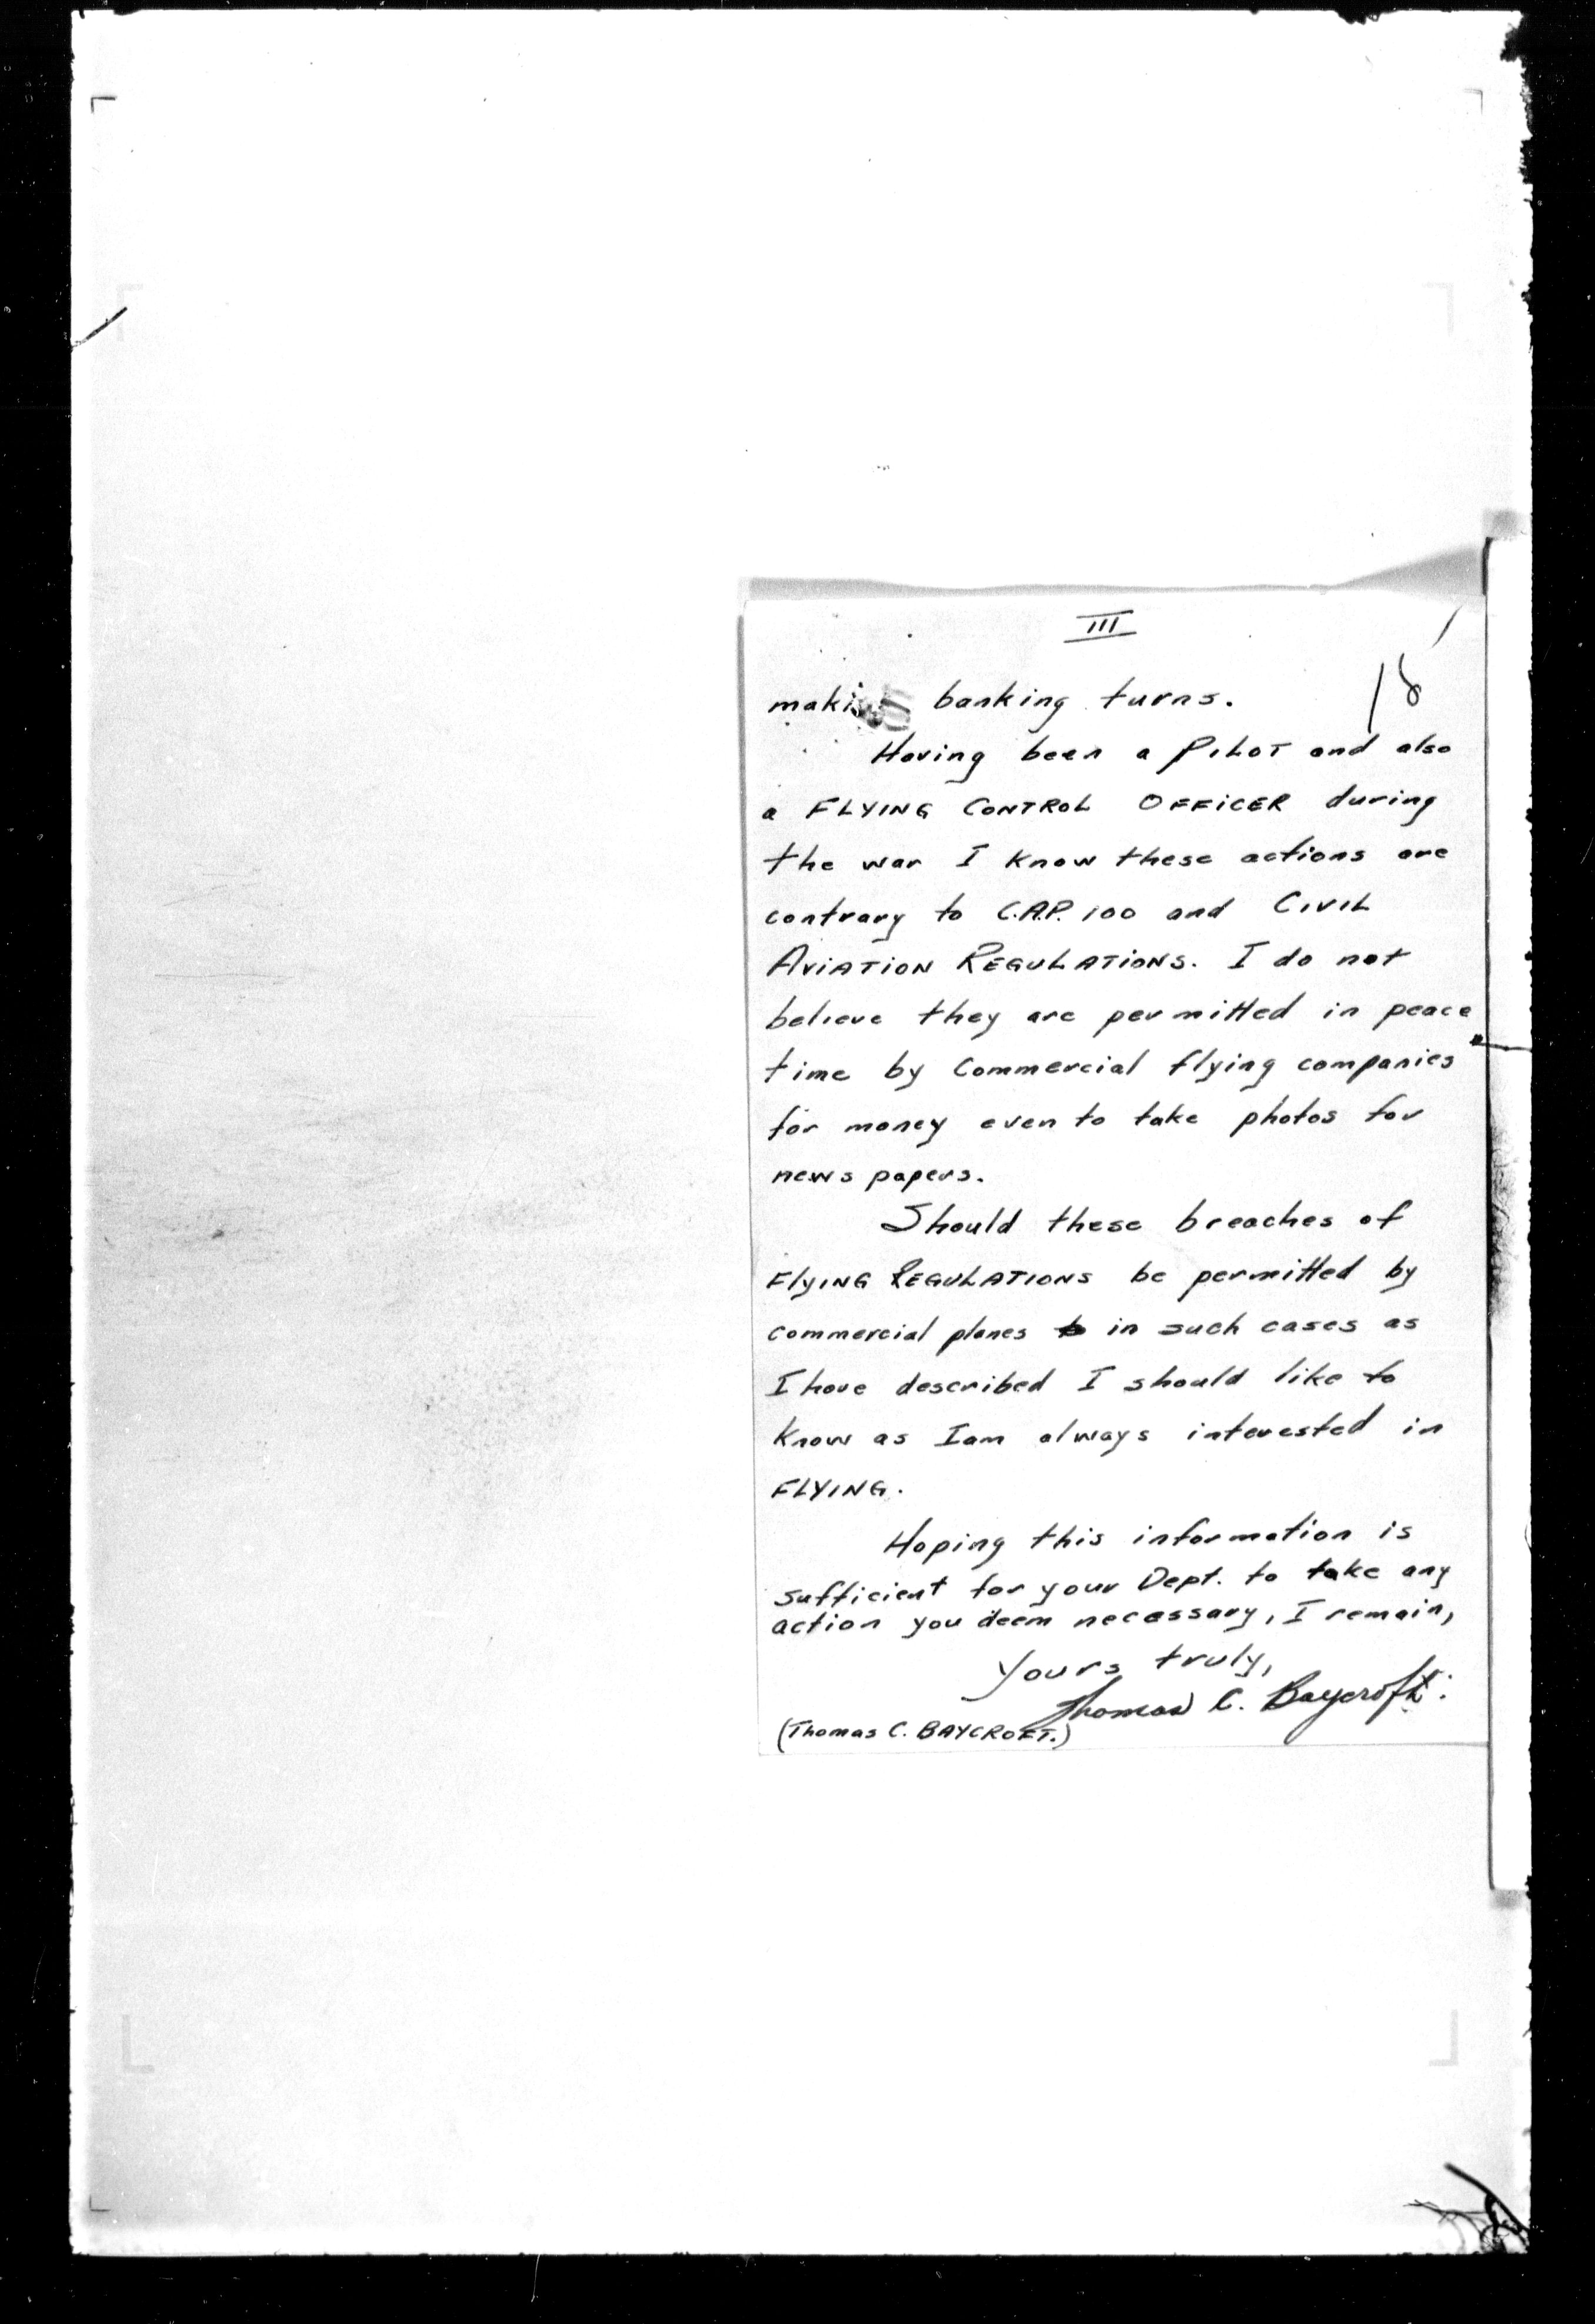 III
18
making banking turns.
Having been a PILOT and also
a FLYING CONTROL OFFICER during
the war I know these actions are
contrary to C.A.P. 100 and CIVIL
AVIATION REGULATIONS. I do not
believe they are permitted in peace
time by Commercial flying companies
for money even to take photos for
news papers.
Should these breaches of
FlyING REGULATIONS be permitted by
commercial planes in such cases as
I have described I should like to
know as I am always interested in
FLYING.
Hoping this information is
sufficient for your Dept. to take any
action you deem necessary, I remain,
Yours truly,
Thomas C. Baycroft.
(Thomas C. BAYCROFT.)